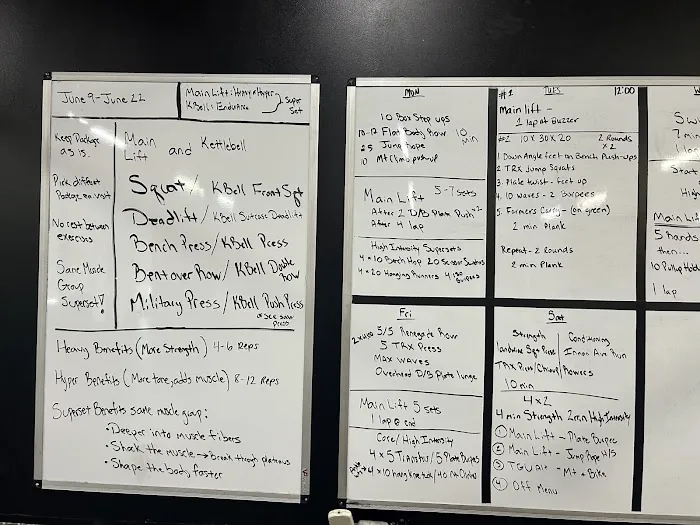 June 9-June 22
Main Lift: Heavy & Hyper
KBell: Endurance
Super
Set
Keep Package
as is.
Pick different
Package ea visit
No rest between
exercises
Same Muscle
Group
Superset!
Main and Kettlebell
Lift
Squat / KBell Front Sqt
Deadlift / KBell Suitcase Deadlift
Bench Press / KBell Press
Bent over Row / KBell Double
Row
Military Press / KBell Push Press
or See Saw
Press
Heavy Benefits (More Strength) 4-6 Reps
Hyper Benefits (More tone, adds muscle) 8-12 Reps
Superset Benefits same muscle group:
• Deeper into muscle fibers
• Shock the muscle → Break through plateaus
• Shape the body faster
Mon
10 Box Step ups
10-12 Flat Body Row
10 min
25 Jump rope
10 Mt Climb pushup
Main Lift 5-7 Sets
After 2 D/B Plate Push
After 4 lap
High Intensity Supersets
4 x 10 Bench Hop 20 Scissor
4 x 20 Hanging Runners 4
#1 Tues 12:00
Main lift -
1 lap at Buzzer
#2 10 x 30 x 20 2 Rounds
x 2
1 Down Angle feet on Bench Push-ups
2 TRX Jump Squats
3. Plate twist - feet up
4. 10 waves - 2 Burpees
5. Farmers Carry - (on green)
2 min Plank
Repeat - 2 Rounds
2 min Plank
W
7 min
1 l
Start
High
Main L
5 Bands
then...
10 Pullup Hold
1 lap
Fri
5/5 Renegade Row
5 TRX Press
Max Waves
Overhead D/B Plate lunge
Main Lift 5 sets
1 lap @ end
Core / High Intensity
4 x 5 Thruster / 5 Plate Burpees
4 x 10 hang knee tuck / 40
Sat
Strength
Conditioning
Landmine Sqt Press
Run
10 min
4 x 2
4 min Strength 2 min High Intensity
① Main Lift - Plate Burpee
② Main Lift - Jump Rope H/S
③ TGU Alt - Mt + Bike
④ Off Menu